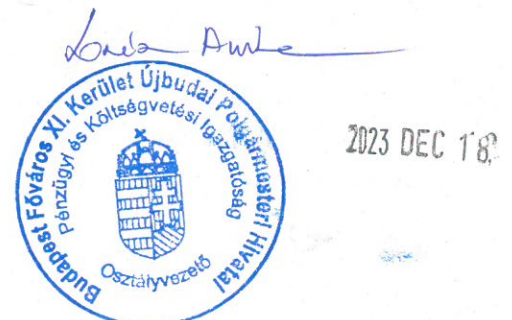 Budapest Főváros XI. Kerület Újbudai Polgármesteri Hivatal
Pénzügyi és Költségvetési Igazgatóság
Osztályvezető
2023 DEC 18.